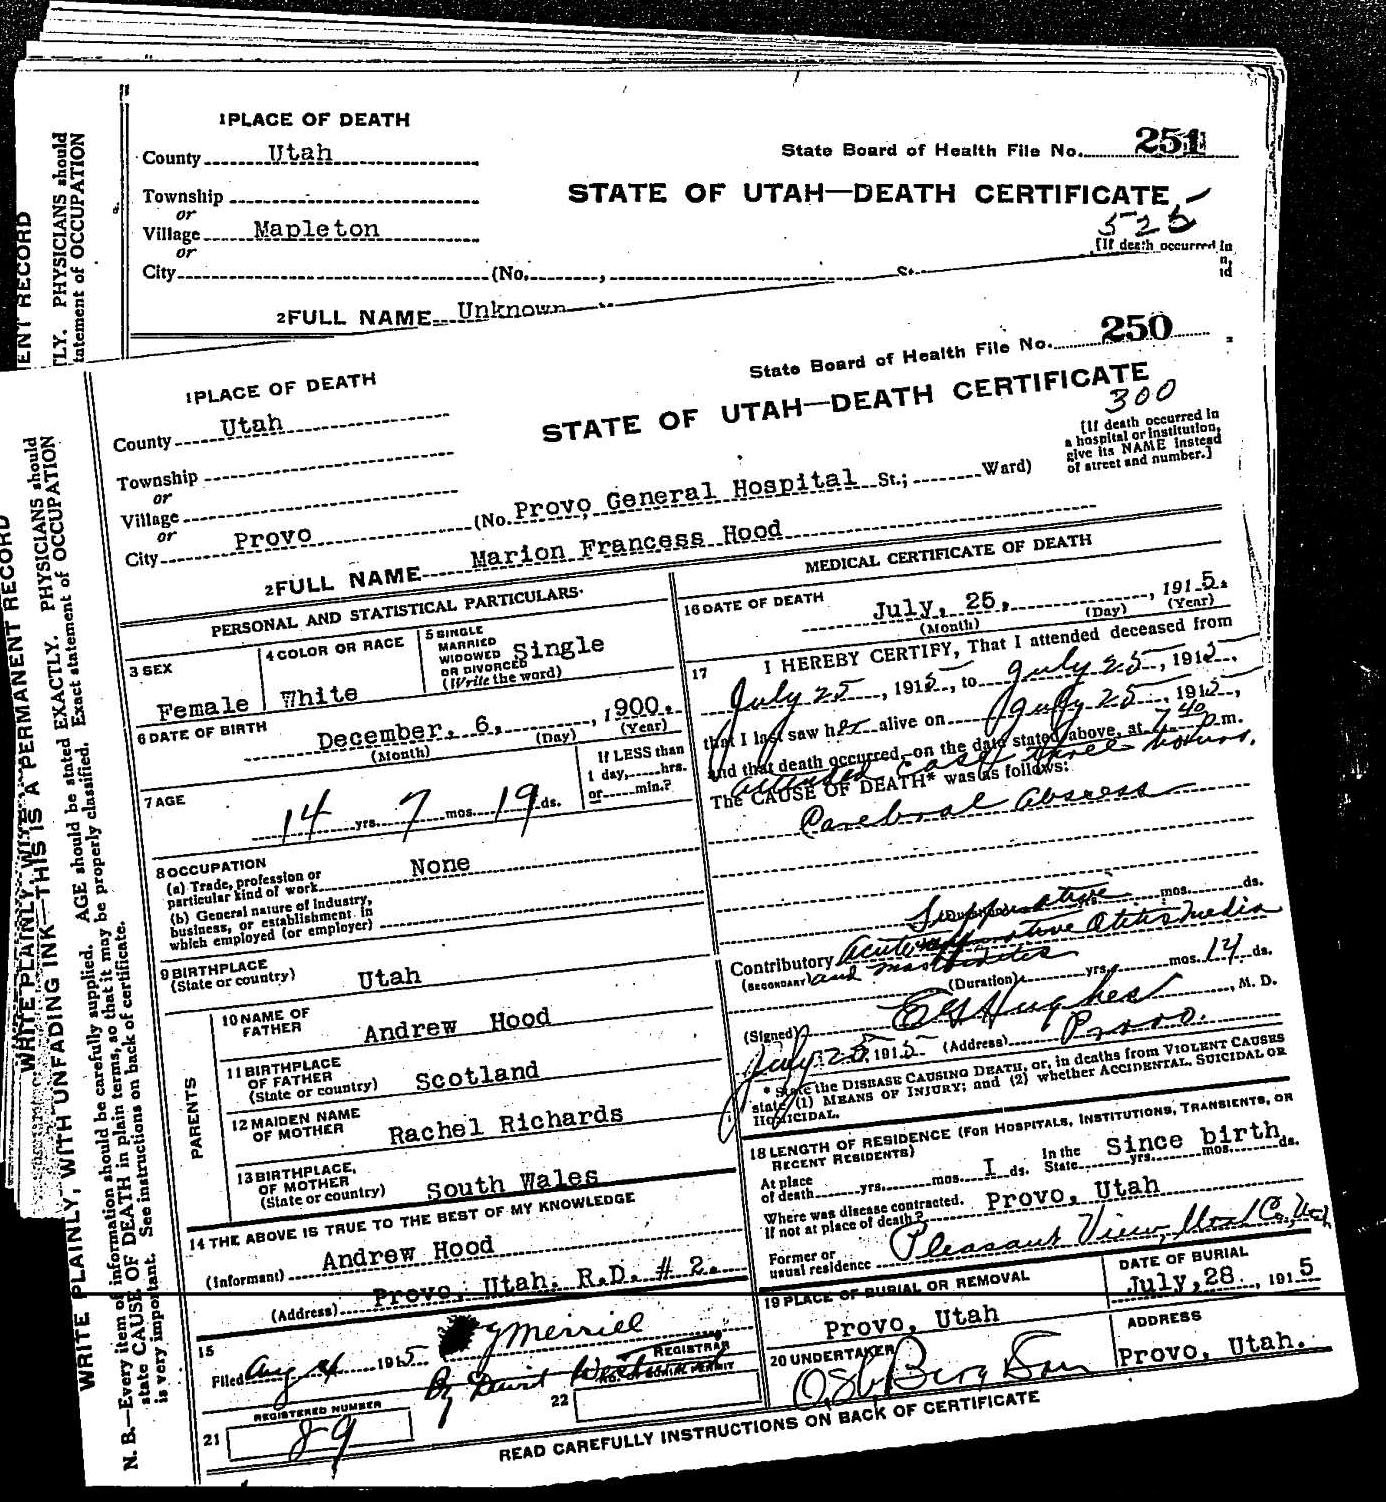 1 PLACE OF DEATH
County Utah
State Board of Health File No. 251
Township
or
STATE OF UTAH—DEATH CERTIFICATE
Village Mapleton
525
or
[If death occurred in
City (No. , St.
2 FULL NAME Unknown
1 PLACE OF DEATH
State Board of Health File No. 250
County Utah
STATE OF UTAH—DEATH CERTIFICATE
300
Township
or
Village
or
City Provo (No. Provo General Hospital St.; Ward)
[If death occurred in
a hospital or institution,
give its NAME instead
of street and number.]
2 FULL NAME Marion Francess Hood
PERSONAL AND STATISTICAL PARTICULARS.
3 SEX
Female
4 COLOR OR RACE
White
5 SINGLE
MARRIED
WIDOWED
OR DIVORCED
(Write the word)
Single
6 DATE OF BIRTH
December, 6, , 1900.
(Month) (Day) (Year)
7 AGE
14 yrs. 7 mos. 19 ds.
If LESS than
1 day, hrs.
or min.?
8 OCCUPATION
(a) Trade, profession or
particular kind of work None
(b) General nature of industry,
business, or establishment in
which employed (or employer)
9 BIRTHPLACE
(State or country) Utah
PARENTS
10 NAME OF
FATHER Andrew Hood
11 BIRTHPLACE
OF FATHER
(State or country) Scotland
12 MAIDEN NAME
OF MOTHER Rachel Richards
13 BIRTHPLACE,
OF MOTHER
(State or country) South Wales
14 THE ABOVE IS TRUE TO THE BEST OF MY KNOWLEDGE
(Informant) Andrew Hood
(Address) Provo, Utah. R.D. # 2.
15
Filed Aug 4 1915 Merrill
REGISTRAR
By
21 REGISTERED NUMBER
89
22
MEDICAL CERTIFICATE OF DEATH
16 DATE OF DEATH
July, 25, , 1915.
(Month) (Day) (Year)
17 I HEREBY CERTIFY, That I attended deceased from
July 25, 1915, to July 25, 1915,
that I last saw her alive on July 25, 1915,
and that death occurred, on the date stated above, at 7 40 p.m.
attended case three hours.
The CAUSE OF DEATH* was as follows:
Cerebral Abscess
mos. ds.
Suppurative
Contributory Acute Otitis Media
(SECONDARY) and mastoiditis
(Duration) yrs. mos. 14 ds.
(Signed) Hughes, M. D.
July 25, 1915 (Address) Provo.
* State the DISEASE CAUSING DEATH, or, in deaths from VIOLENT CAUSES
state (1) MEANS OF INJURY; and (2) whether ACCIDENTAL, SUICIDAL OR
HOMICIDAL.
18 LENGTH OF RESIDENCE (FOR HOSPITALS, INSTITUTIONS, TRANSIENTS, OR
RECENT RESIDENTS)
At place
of death yrs. mos. I ds. In the
State Since birth yrs. mos. ds.
Where was disease contracted.
If not at place of death? Provo, Utah
Former or
usual residence Pleasant View, Utah Co, Utah
19 PLACE OF BURIAL OR REMOVAL
Provo, Utah
DATE OF BURIAL
July, 28 , 1915
20 UNDERTAKER
Berg & Son
ADDRESS
Provo, Utah.
READ CAREFULLY INSTRUCTIONS ON BACK OF CERTIFICATE
WRITE PLAINLY, WITH UNFADING INK—THIS IS A PERMANENT RECORD
N. B.—Every item of information should be carefully supplied. AGE should be stated EXACTLY. PHYSICIANS should
state CAUSE OF DEATH in plain terms, so that it may be properly classified. Exact statement of OCCUPATION
is very important. See instructions on back of certificate.